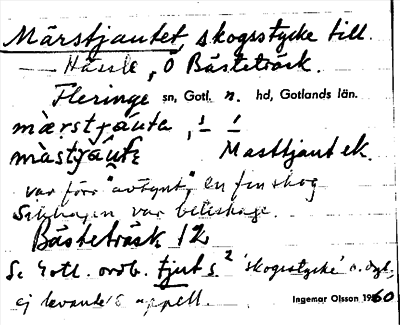 Märstjautet, skogsstycke till.
Hässle, Ö Bästeträsk.
Fleringe sn, Gotl. n. hd, Gotlands län.
märstjáuta,
mästjáute Masttjaut ek.
var förr "avtynt", en fin skog
var beteshage.
Bästeträsk 12
Se Gotl. ordb. tjut s.2 'skogsstycke' o. dyl.
ej levande s appell.
Ingemar Olsson 1960